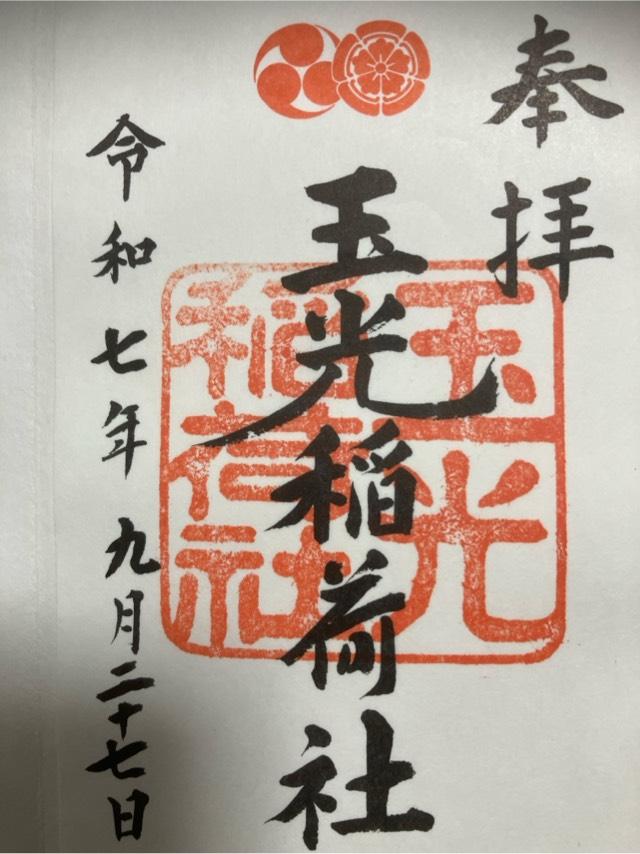 奉拝
玉光稲荷社
玉光
稲荷社
令和七年九月二十七日